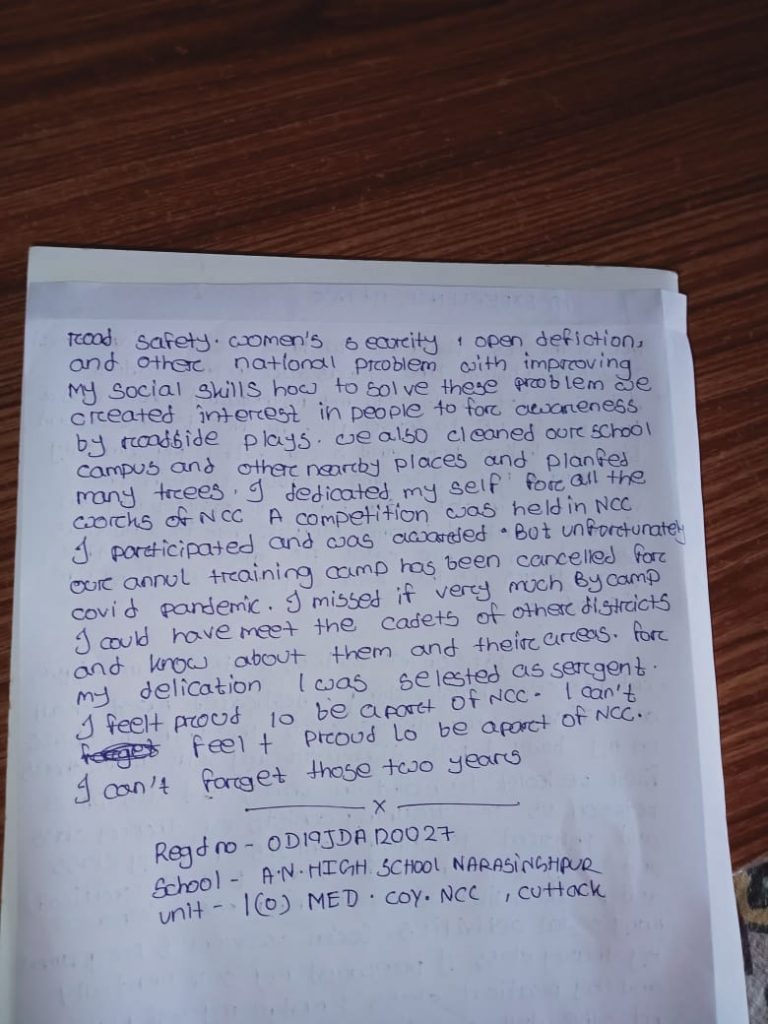 road safety. women's secarcity, open defiction,
and other national problem with improving
My social skills how to solve these problem we
created interest in people to for awareness
by roadside plays. we also cleaned our school
campus and other nearby places and planfed
many trees. I dedicated my self for all the
works of NCC A competition was held in NCC
I participated and was awarded. But unfortunately
our annul training camp has been cancelled for
covid pandemic. I missed if very much By camp
I could have meet the cadets of other districts
and know about them and their areas. for
my delication I was selested as sergent.
I feelt proud to be a part of NCC. I can't
feel t proud to be apart of NCC.
I can't forget those two years
x
Regd no - OD19JDA120027
School - A.N. HIGH SCHOOL NARASINGHPUR
unit - 1(O) MED. COY. NCC, CUTTACK